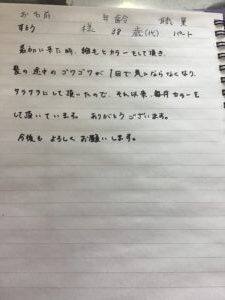 お名前 年齢 職業
すどう 様 38 歳(代) パート
初めに来た時、縮毛とカラーをして頂き、
髪の途中のゴワゴワが1回で気にならなくなり、
サラサラにして頂いたので、それ以来、毎月カラーを
して頂いています。ありがとうございます。
今後もよろしくお願いします。